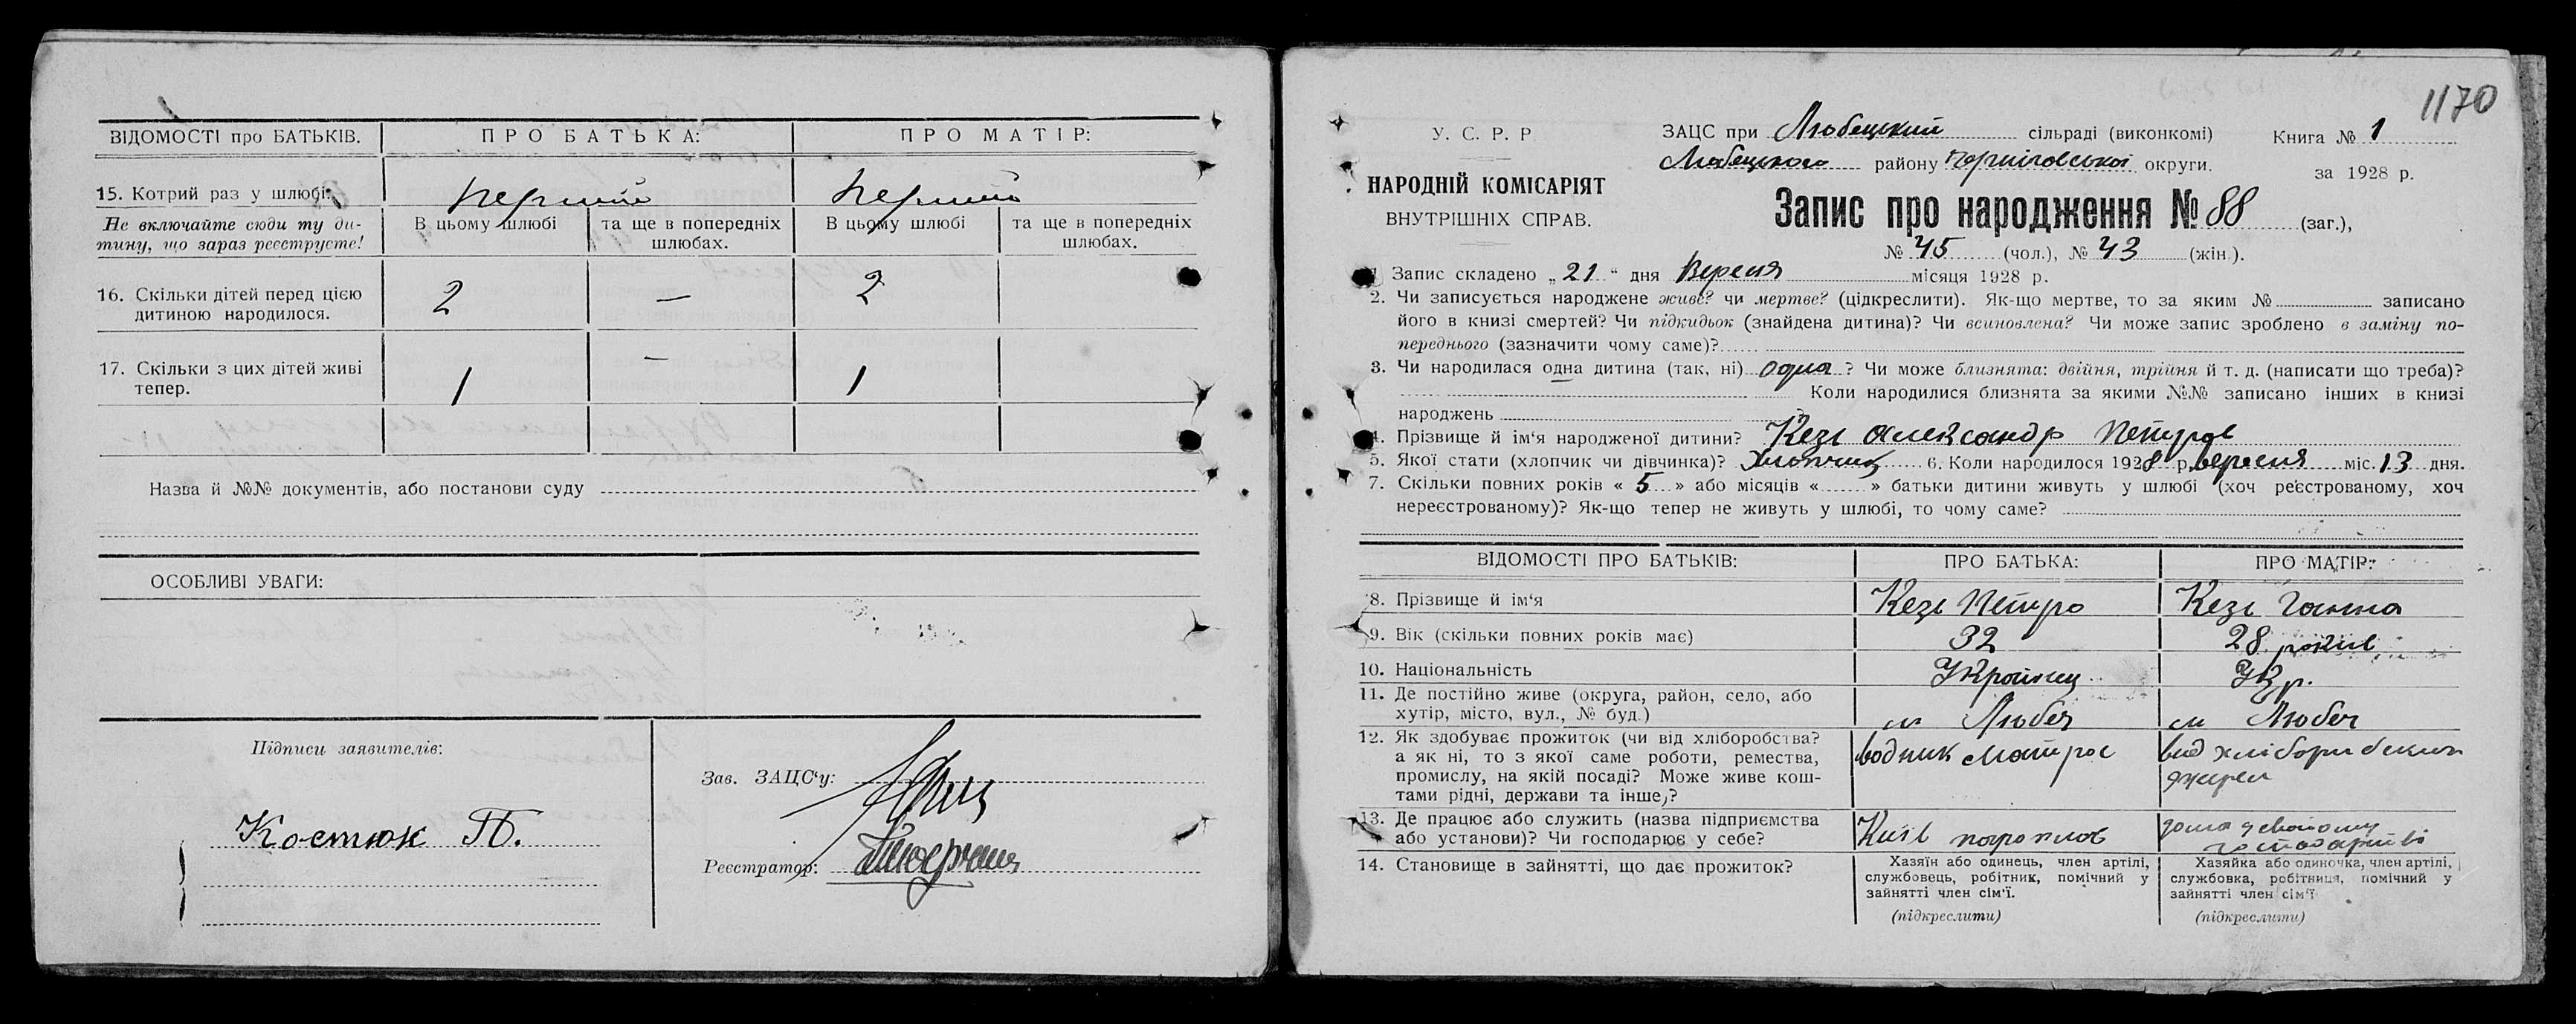 ВІДОМОСТІ про БАТЬКІВ. ПРО БАТЬКА: ПРО МАТІР:
15. Котрий раз у шлюбі: перший перший
Не включайте сюди ту ди- В цьому шлюбі та ще в попередніх В цьому шлюбі та ще в попередніх
тину, що зараз реєструєте! шлюбах. шлюбах.
16. Скільки дітей перед цією 2 — 2
дитиною народилося.
17. Скільки з цих дітей живі 1 — 1
тепер.
Назва й №№ документів, або постанови суду
ОСОБЛИВІ УВАГИ:
Підписи заявителів:
Зав. ЗАЦС‘у:
Костюк П.
Реєстратор:
1170
У. С. Р. Р ЗАЦС при Любецкий сільраді (виконкомі) Книга № 1
Любецкого району Черніговської округи.
за 1928 р.
НАРОДНІЙ КОМІСАРІЯТ
ВНУТРІШНІХ СПРАВ.
Запис про народження № 88 (заг.),
№ 45 (чол.), № 43 (жін.).
Запис складено „21“ дня Вересня місяця 1928 р.
2. Чи записується народжене живе? чи мертве? (цідкреслити). Як-що мертве, то за яким № записано
його в книзі смертей? Чи підкидьок (знайдена дитина)? Чи всиновлена? Чи може запис зроблено в заміну по-
переднього (зазначити чому саме)?
3. Чи народилася одна дитина (так, ні) одна? Чи може близнята: двійня, трійня й т. д. (написати що треба)?
Коли народилися близнята за якими №№ записано інших в книзі
народжень
4. Прізвище й ім‘я народженої дитини? Кезь Александр Петров
5. Якої стати (хлопчик чи дівчинка)? Хлопчик 6. Коли народилося 1928 р. вересня міс. 13 дня.
7. Скільки повних років « 5 » або місяців « » батьки дитини живуть у шлюбі (хоч реєстрованому, хоч
нереєстрованому)? Як-що тепер не живуть у шлюбі, то чому саме?
ВІДОМОСТІ ПРО БАТЬКІВ: ПРО БАТЬКА: ПРО МАТІР:
8. Прізвище й ім‘я Кезь Петро Кезь Ганна
9. Вік (скільки повних років має) 32 28 років
10. Національність Україниц Укр.
11. Де постійно живе (округа, район, село, або
хутір, місто, вул., № буд.) м Любеч м Любеч
12. Як здобуває прожиток (чи від хліборобства?
а як ні, то з якої саме роботи, ремества,
промислу, на якій посаді? Може живе кош-
тами рідні, держави та інше,?
водник матрос
13. Де працює або служить (назва підприємства
або установи)? Чи господарює у себе?
Київ
14. Становище в зайнятті, що дає прожиток?
Хазяїн або одинець, член артілі,
службовець, робітник, помічний у
зайнятті член сім‘ї.
(підкреслити)
Хазяйка або одиночка, член артілі,
службовка, робітниця, помічний у
зайнятті член сім‘ї
(підкреслити)